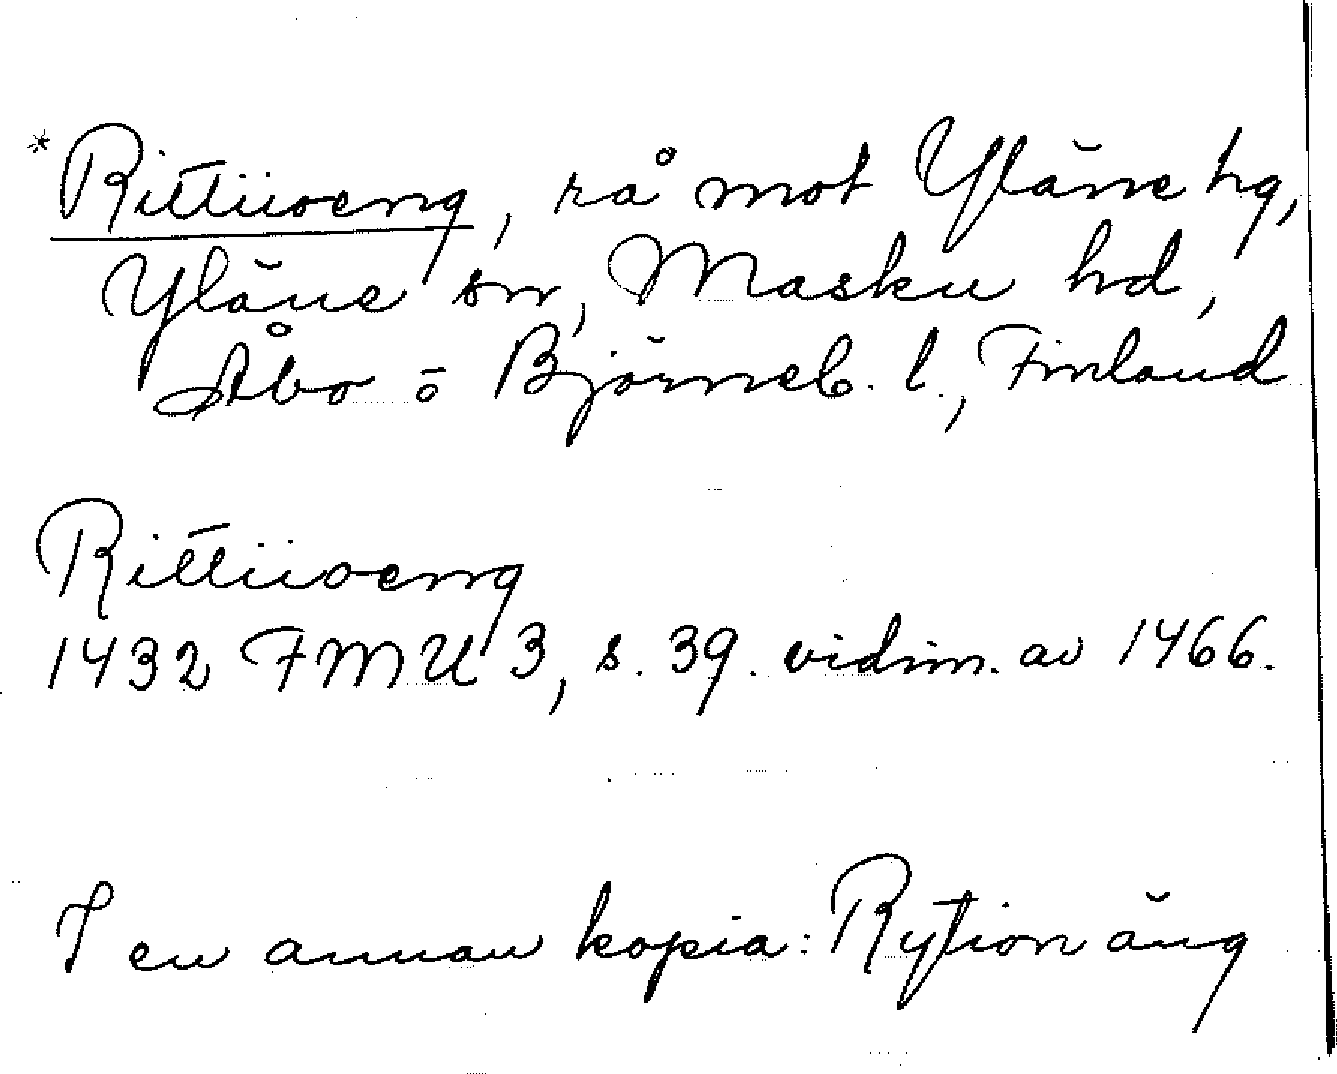 * Rittiioeng, rå mot Yläne hg,
Yläne sn, Masku hd,
Åbo o Björneb. l., Finland
Rittiioeng
1432 FMU 3, s. 39. vidim. av 1466.
I en annan kopia: Rytion äng